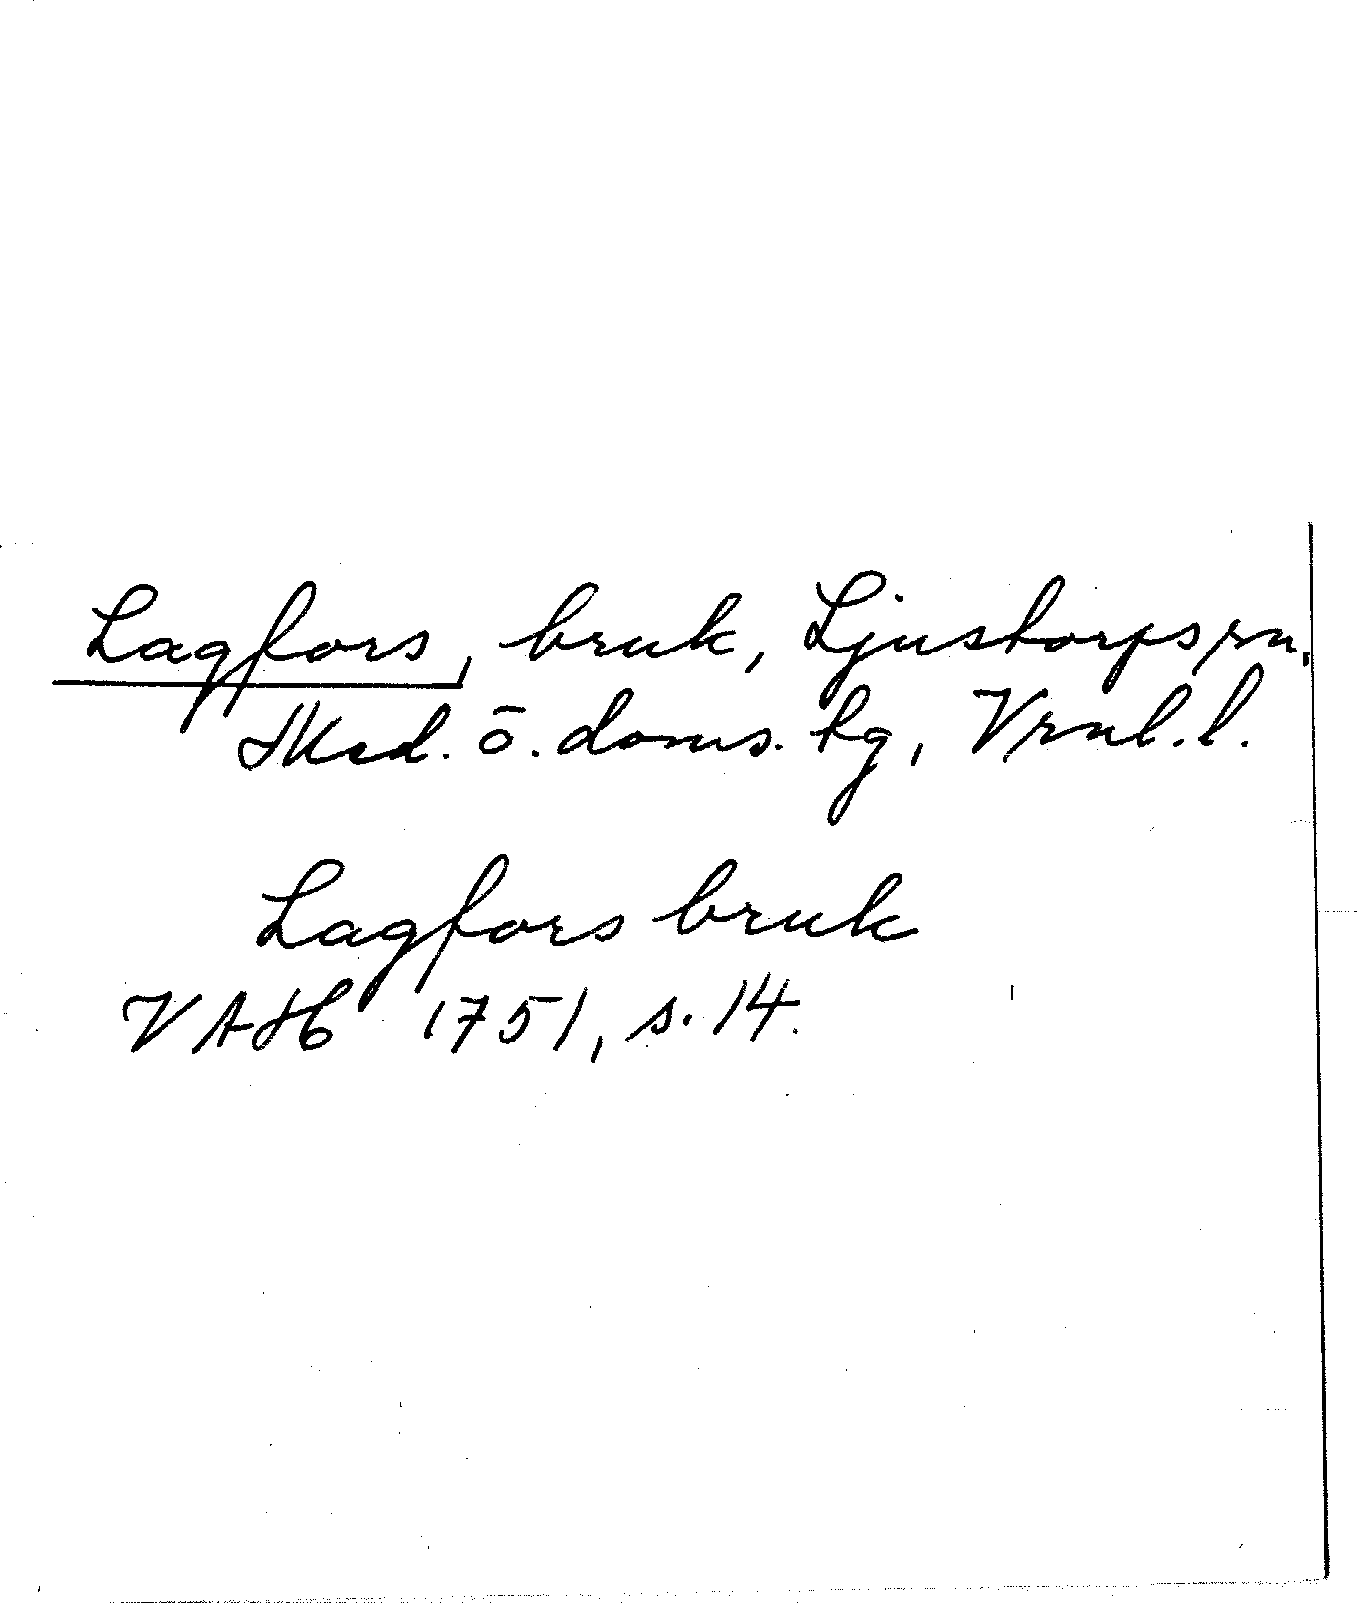 Lagfors, bruk, Ljustorps sn.
Med. ö. doms. tg, Vrnl. l.
Lagfors bruk
VAH 1751, s. 14.